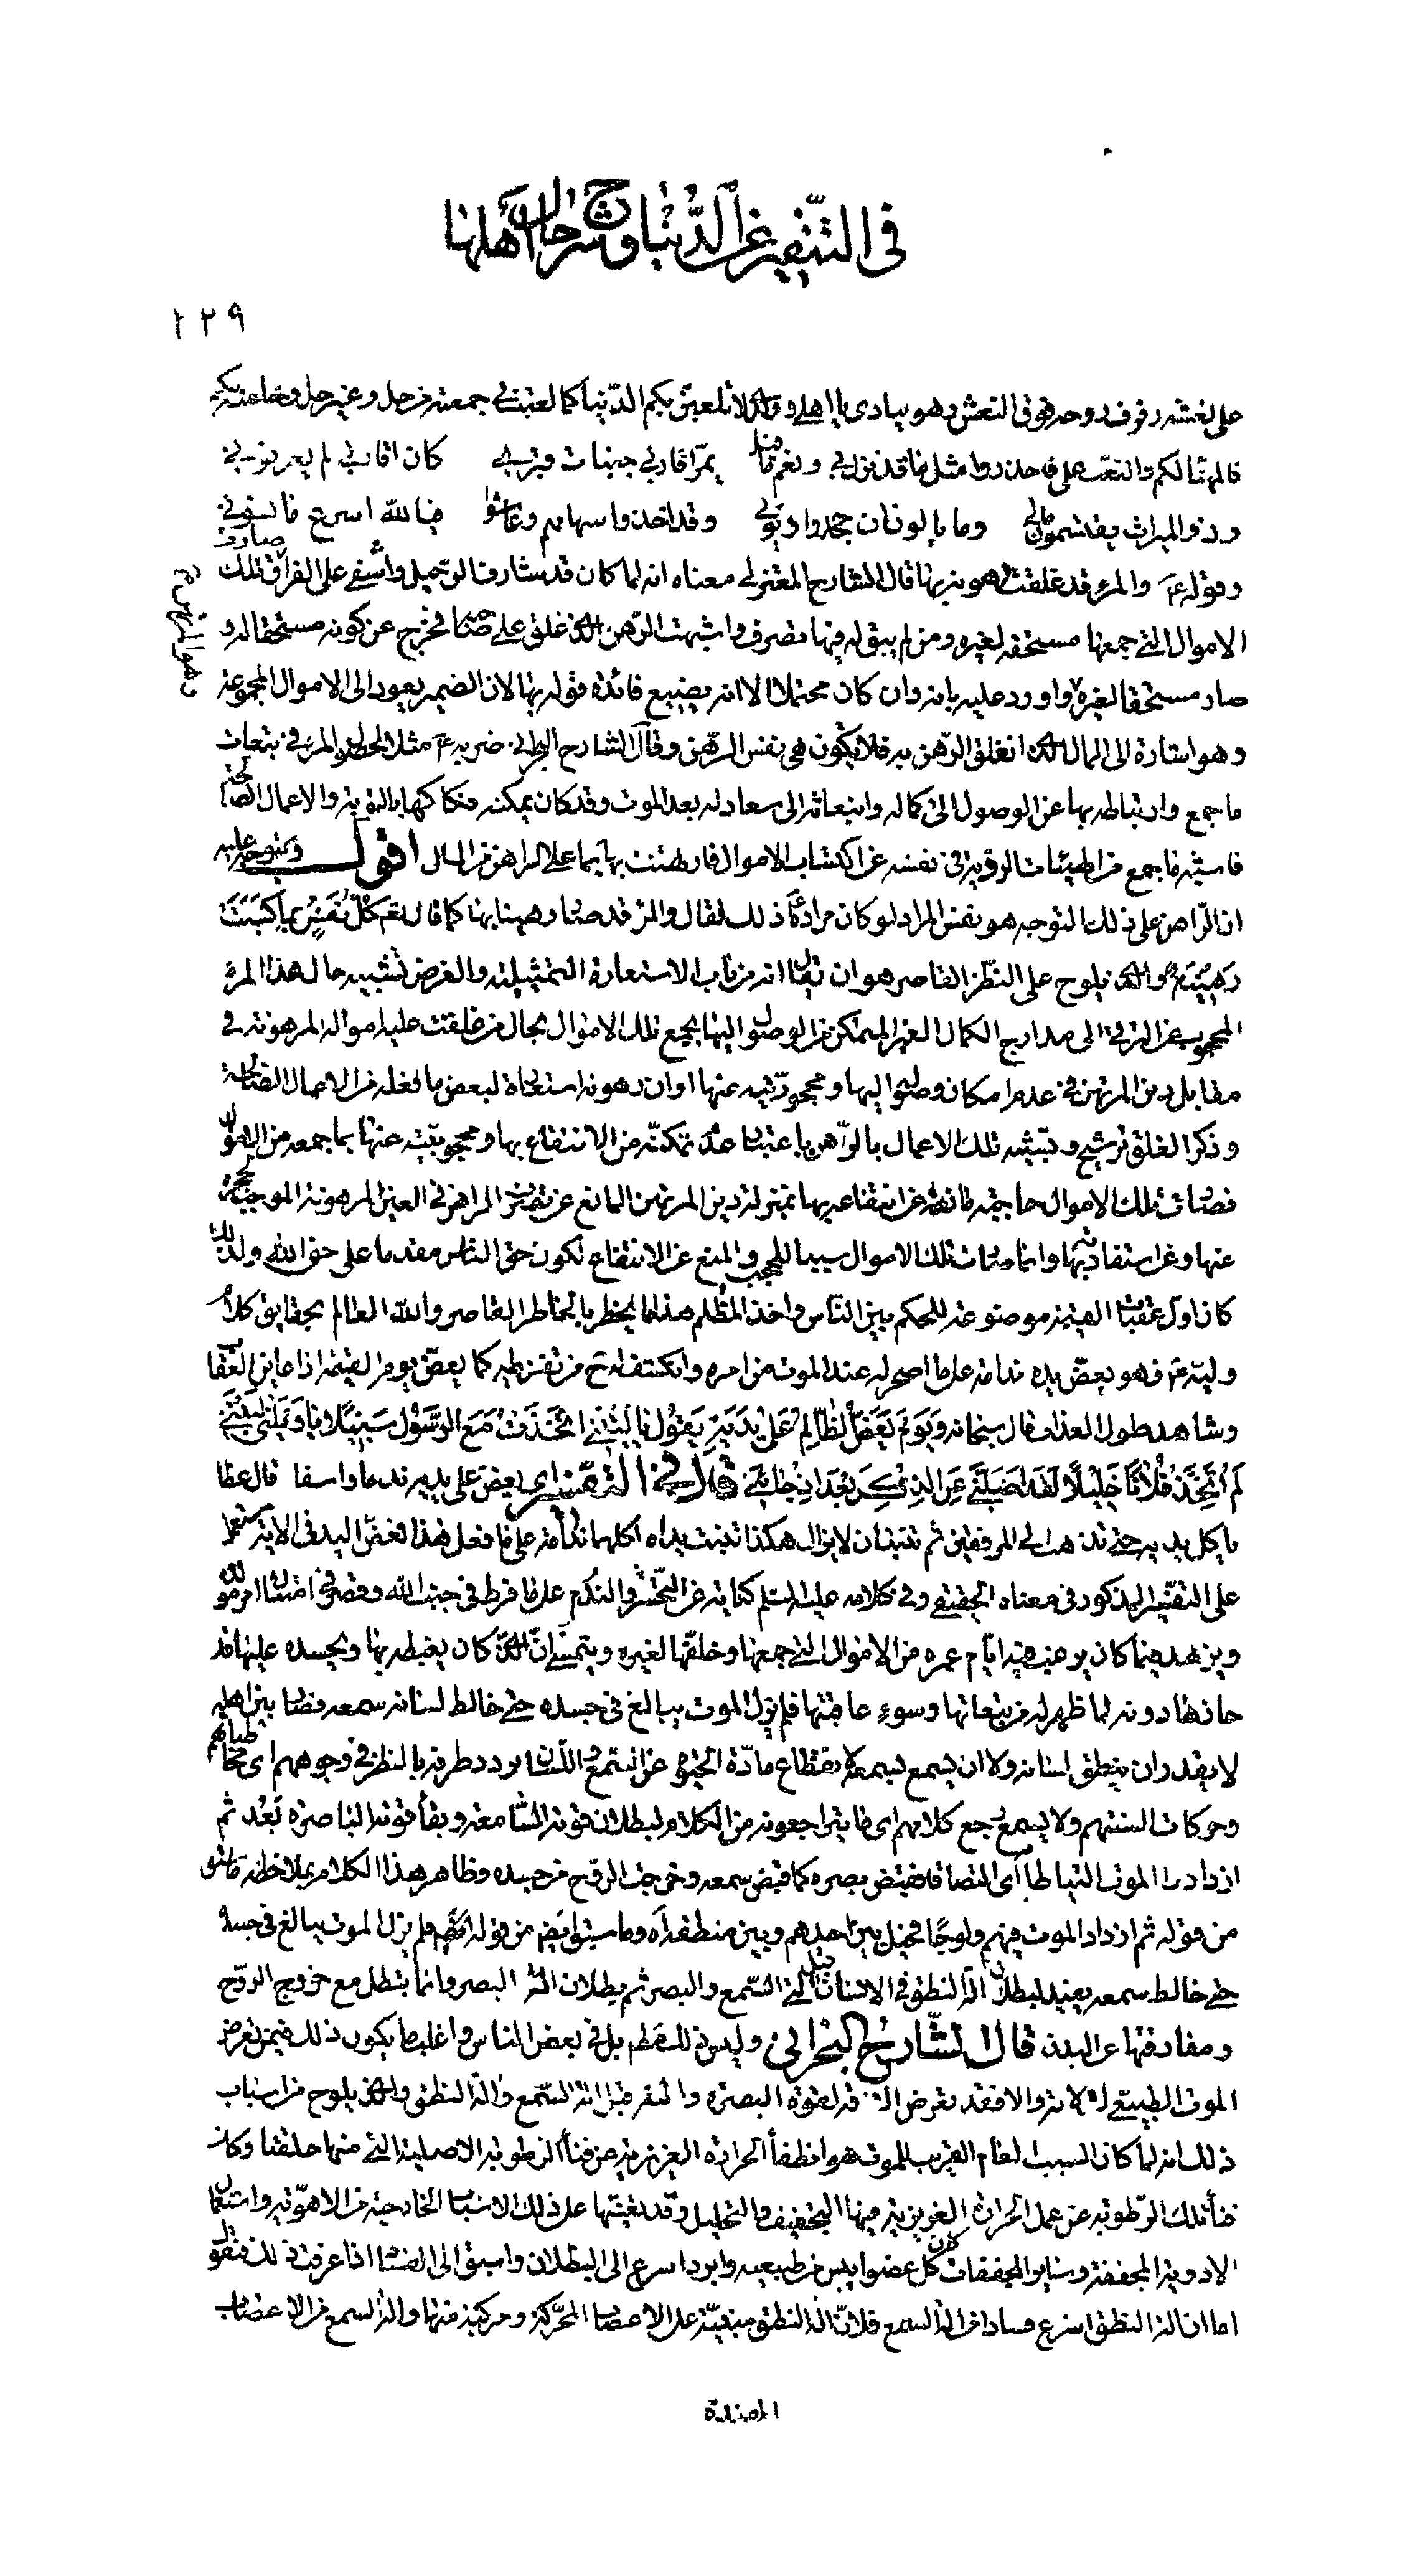 في التنفير عن الدنيا وشرح حال أهلها
١٢٩
على نعشه رفرف روحه فوق النعش وهو ينادي يا اهلي و ولدي لا تلعبن بكم الدنيا كما لعبت بي جمعته من حل وغير حل وخلفته
فالمهنا لكم والتبعة علي فاحذروا مثل ما قد نزل بي ونعم ما قيل يمر اقاربي جنبات قبري كان اقاربي لم يعرفوني
وذو الميراث يقتسمون مالي وما يالون ان جحدوا ديوني وقد اخذوا سهامهم وعاشوا فيا لله اسرع ما نسوني
وقوله ع والمرء قد غلقت رهونه بها قال الشارح المعتزلي معناه انه لما كان قد شارف الرحيل واشفى على الفراق صارت تلك
الاموال التي جمعها مستحقه لغيره ومن لم يبق له فيها تصرف واشبهت الرهن الذي غلق على صاحبه فخرج عن كونه مستحقا له و
صار مستحقا لغيره واورد عليه بانه وان كان محتملا الا انه يضيع فائدة قوله بها لان الضمير يعود الى الاموال المجموعة
وهو المرتهن
وهو اشارة الى المال الذي انغلق الرهن به فلا تكون هي نفس الرهن وقال الشارح البحراني ضربه ع مثلا لحصول المرء في تبعات
ما جمع وارتباطه بها عن الوصول الى كماله وانبعاثه الى سعادته بعد الموت وقد كان يمكنه فكاكها بالتوبة والاعمال الصالحة
فاشبه ما جمع من الهيئات الردية في نفسه عن اكتساب الاموال فارتهنت بها بما على الراهن من المال اقول ويتوجه عليه
ان الراهن على ذلك التوجيه هو نفس المرء ولو كان مراده ذلك لقال والمرء قد صار رهينا بها كما قال تعم كل نفس بما كسبت
رهينة والذي يلوح على النظر القاصر هو ان يقال انه من باب الاستعارة التمثيلية والغرض تشبيه حال هذا المرء
المحجوب عن الترقي الى مدارج الكمال الغير المتمكن من الوصول اليها بجمع تلك الاموال بحال من غلقت عليه امواله المرهونة في
مقابل دين المرتهن في عدم امكان وصوله اليها ومحجوبيته عنها او ان رهونه استعارة لبعض ما فعله من الاعمال الصالحة
وذكر الغلق ترشيح وتشبيه تلك الاعمال بالرهن باعتبار عدم تمكنه من الانتفاع بها ومحجوبيته عنها بما جمعه من الاموال
فصارت تلك الاموال حاجبة مانعة عن انتفاعه بها بمنزلة دين المرتهن المانع عن تصرف الراهن في العين المرهونة الموجب لحجبه
عنها وعن استفادته بها وانما صارت تلك الاموال سببا للحجب والمنع عن الانتفاع لكون حق الناس مقدما على حق الله ولذلك
كان اول عقبات القيمة موضوعة للحكم بين الناس واخذ المظالم هذا ما يخطر بالخاطر القاصر والله العالم بحقايق كلام
وليه ع فهو يعض يده ندامة على ما اصحر له عند الموت من امره وانكشف له ح من تفريطه كما يعض يوم القيمة اذا عاين العقاب
وشاهد طول العذاب قال سبحانه ويوم يعض الظالم على يديه يقول يا ليتني اتخذت مع الرسول سبيلا يا ويلتى ليتني
لم اتخذ فلانا خليلا لقد اضلني عن الذكر بعد اذ جائني قال في التفسير اي يعض على يديه ندما واسفا قال عطا
ياكل يديه حتى تذهب الى المرفقين ثم تنبتان لا يزال هكذا نبتت يداه اكلهما ندامة على ما فعل فعض اليد في الاية مستعمل
على التفسير المذكور في معناه الحقيقي وفي كلامه عليه السلم كناية عن التحسر والتندم على ما فرط في جنب الله وقصر في امتثال امر مولاه
ويزهد فيما كان يرغب فيه ايام عمره من الاموال التي جمعها وخلفها لغيره ويتمنى ان الذي كان يغبطه بها ويحسده عليها قد
حازها دونه لما ظهر له من تبعاتها وسوء عاقبتها فلم يزل الموت يبالغ في جسده حتى خالط لسانه سمعه فصار بين اهله
لا يقدر ان ينطق بلسانه ولا ان يسمع بسمعه لانقطاع مادة الحيوة عن السمع واللسان يردد طرفه بالنظر في وجوههم اي مخاطباتهم
وحركات السنتهم ولا يسمع رجع كلامهم اي ما يتراجعونه من الكلام لبطلان قوته السامعة وبقاء قوته الباصرة بعد ثم
ازداد الموت التياطا اي التصاقا فقبض بصره كما قبض سمعه وخرجت الروح من جسده وظاهر هذا الكلام بملاحظة ما سبق
من قوله ثم ازداد الموت فيهم ولوجا فحيل بين احدهم وبين منطقه اه وما سيق ايضا من قوله فلم يزل الموت يبالغ في جسده
حتى خالط سمعه يفيد بطلان آلة النطق في الانسان قبل آلتي السمع والبصر ثم بطلان آلة البصر وانما يتبطل مع خروج الروح
ومفارقتها عن البدن قال الشارح البحراني وليس ذلك مطلقا بل في بعض الناس واغلب ما يكون ذلك فيمن تعرض
الموت الطبيعي لآلاته والا فقد تعرض الآفة لقوة البصرة والنظر قبل آلة السمع وآلة النطق والذي يلوح من اسباب
ذلك انه لما كان السبب العام القريب للموت هو انطفاء الحرارة الغريزية عن فناء الرطوبة الاصلية التي منها خلقنا وكان
فناء تلك الرطوبة عن عمل الحرارة الغريزية فيها التجفيف والتحليل وقد تعينها على ذلك الاسباب الخارجية من الاهوية واستعمال
الادوية المجففة وسائر المجففات كان كل عضو ايبس من طبيعيه وابرد اسرع الى البطلان واسبق الى الفساد اذا عرفت ذلك فنقول
اما ان آلة النطق اسرع فسادا من آلة السمع فلان آلة النطق مبنية على الاعصاب المحركة ومركبة منها وآلة السمع من الاعصاب
المفيدة